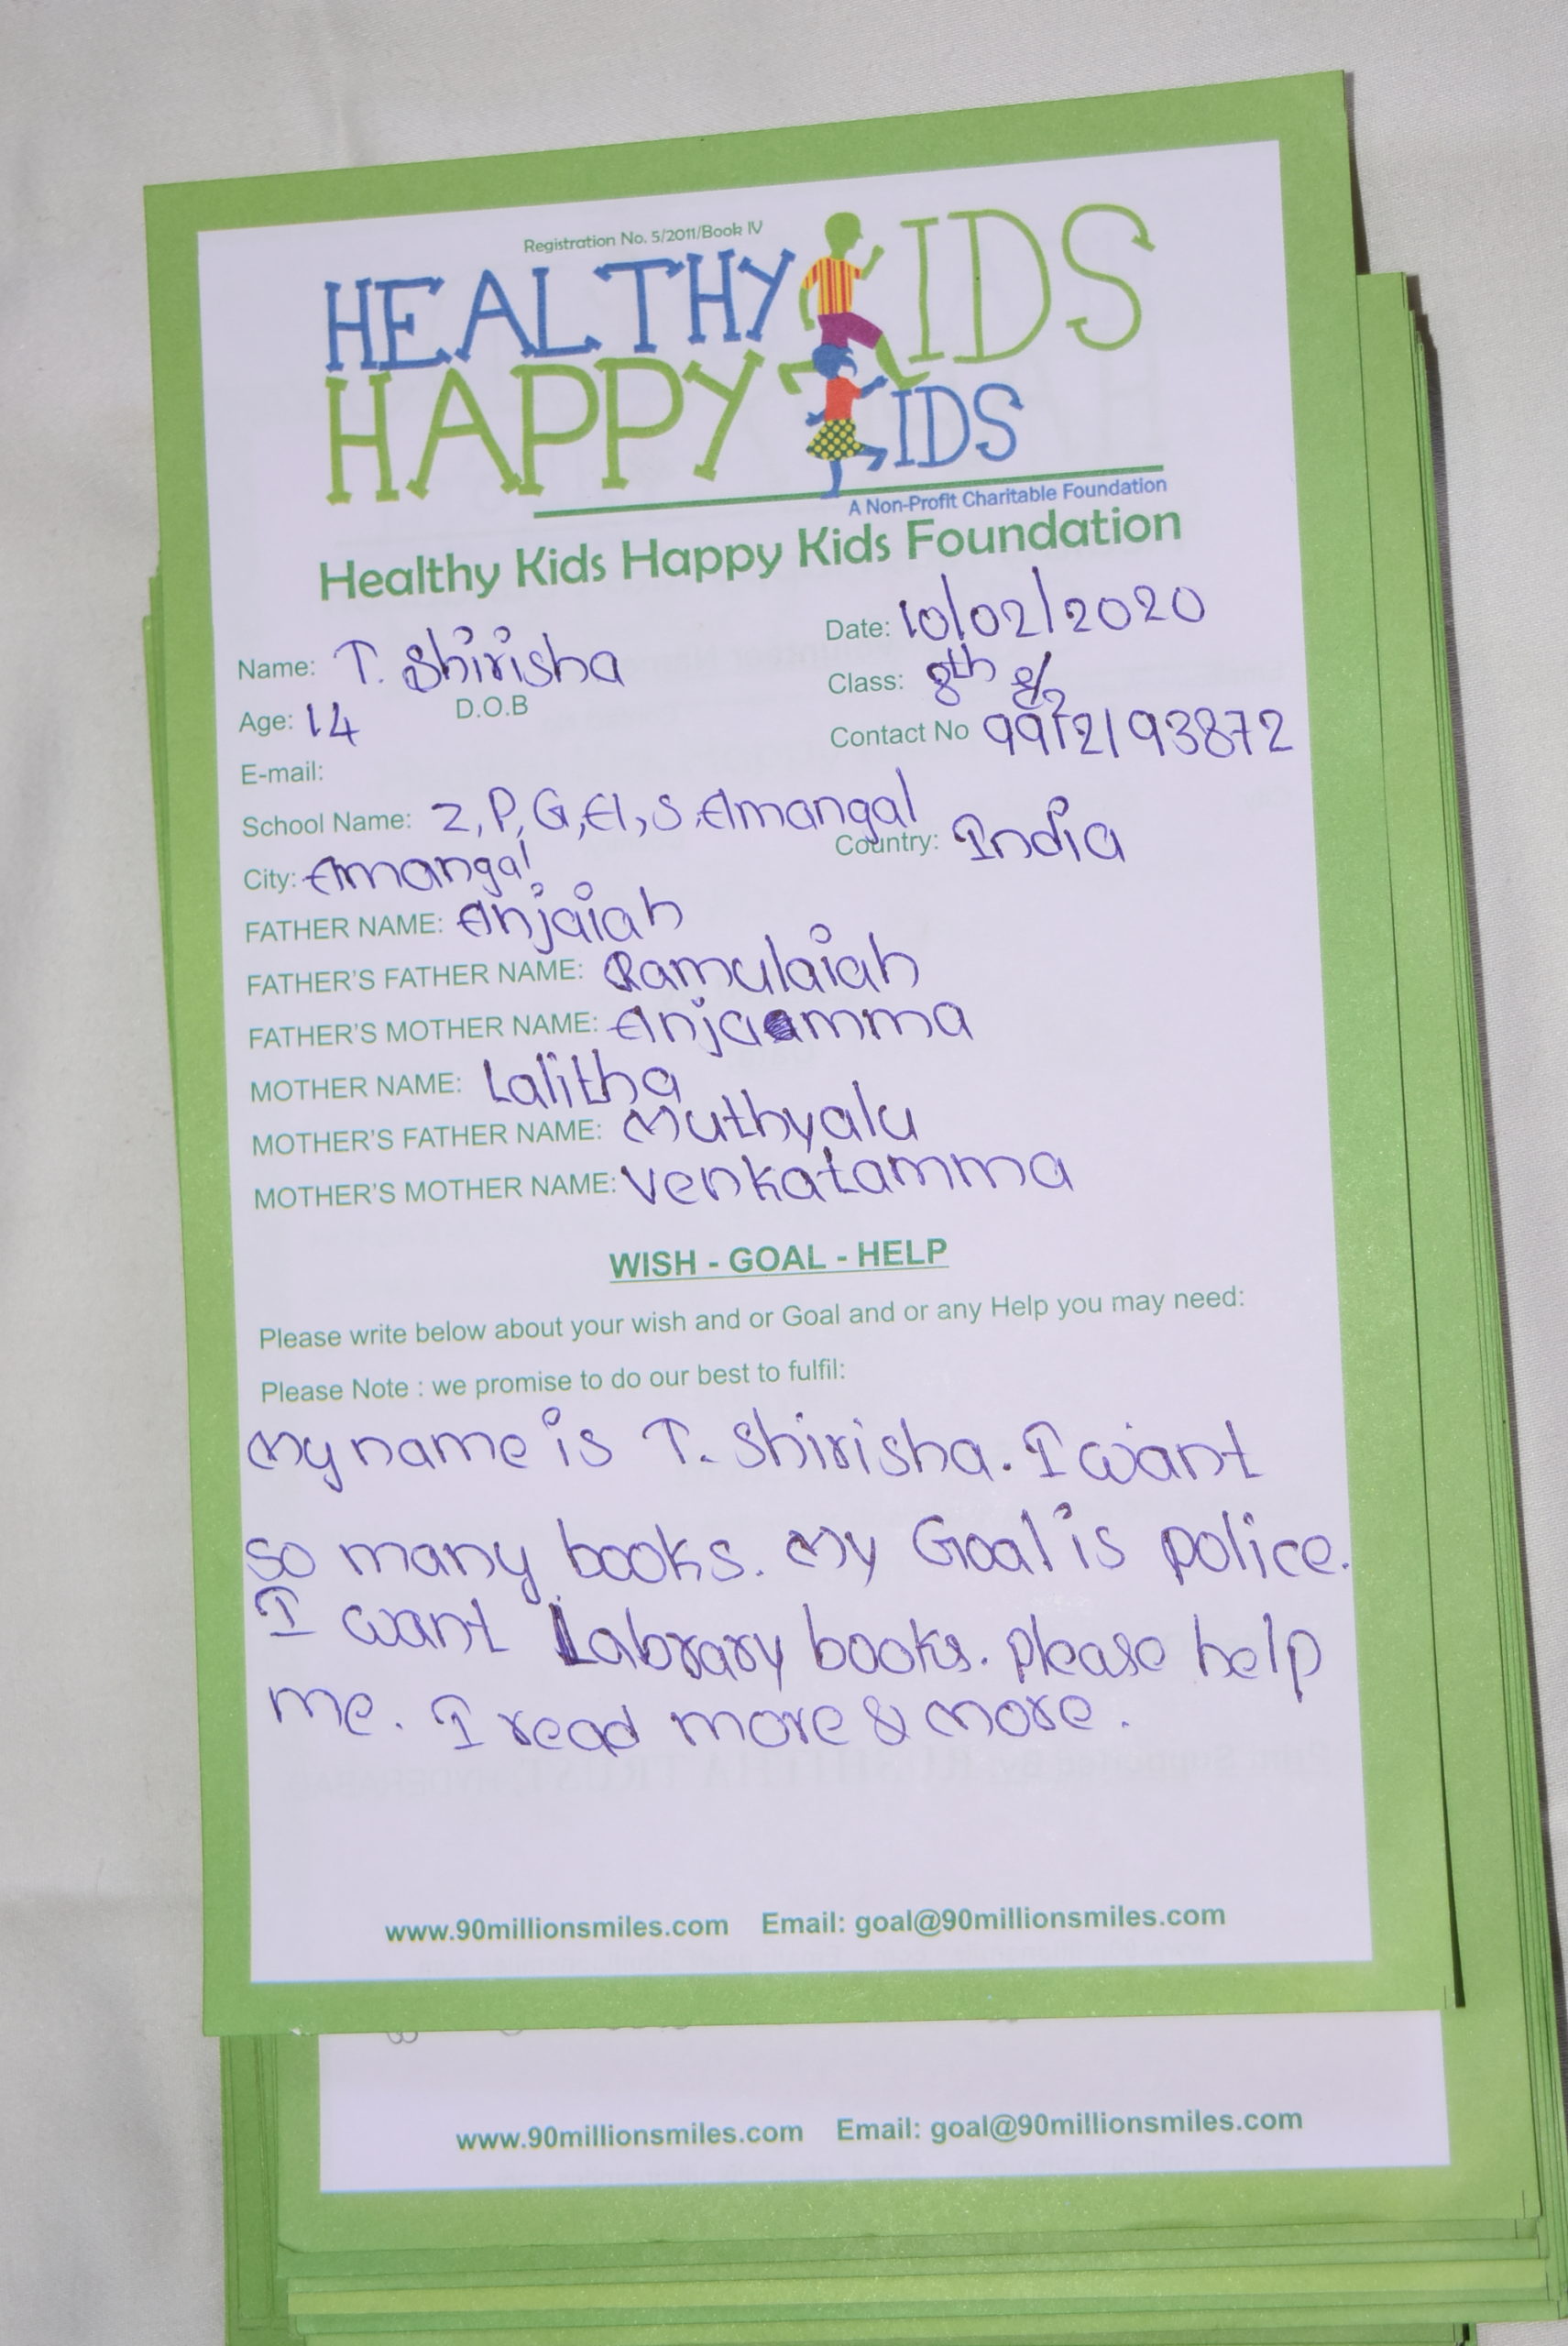 Registration No. 5/2011/Book IV
HEALTHY KIDS
HAPPY KIDS
A Non-Profit Charitable Foundation
Healthy Kids Happy Kids Foundation
Date: 10/02/2020
Name: T. Shirisha
Class: 8th
Age: 14 D.O.B
Contact No
E-mail:
School Name: Z, P, G, H, S Amangal
City: Amangal Country: India
FATHER NAME: Anjaiah
FATHER'S FATHER NAME: Ramulaiah
FATHER'S MOTHER NAME: Anjaamma
MOTHER NAME: Lalitha
MOTHER'S FATHER NAME: Muthyalu
MOTHER'S MOTHER NAME: Venkatamma
WISH - GOAL - HELP
Please write below about your wish and or Goal and or any Help you may need:
Please Note : we promise to do our best to fulfil:
My name is T. Shirisha. I want
so many books. My Goal is police.
I want Labrary books. please help
me. I read more & more.
www.90millionsmiles.com Email: goal@90millionsmiles.com
www.90millionsmiles.com Email: goal@90millionsmiles.com